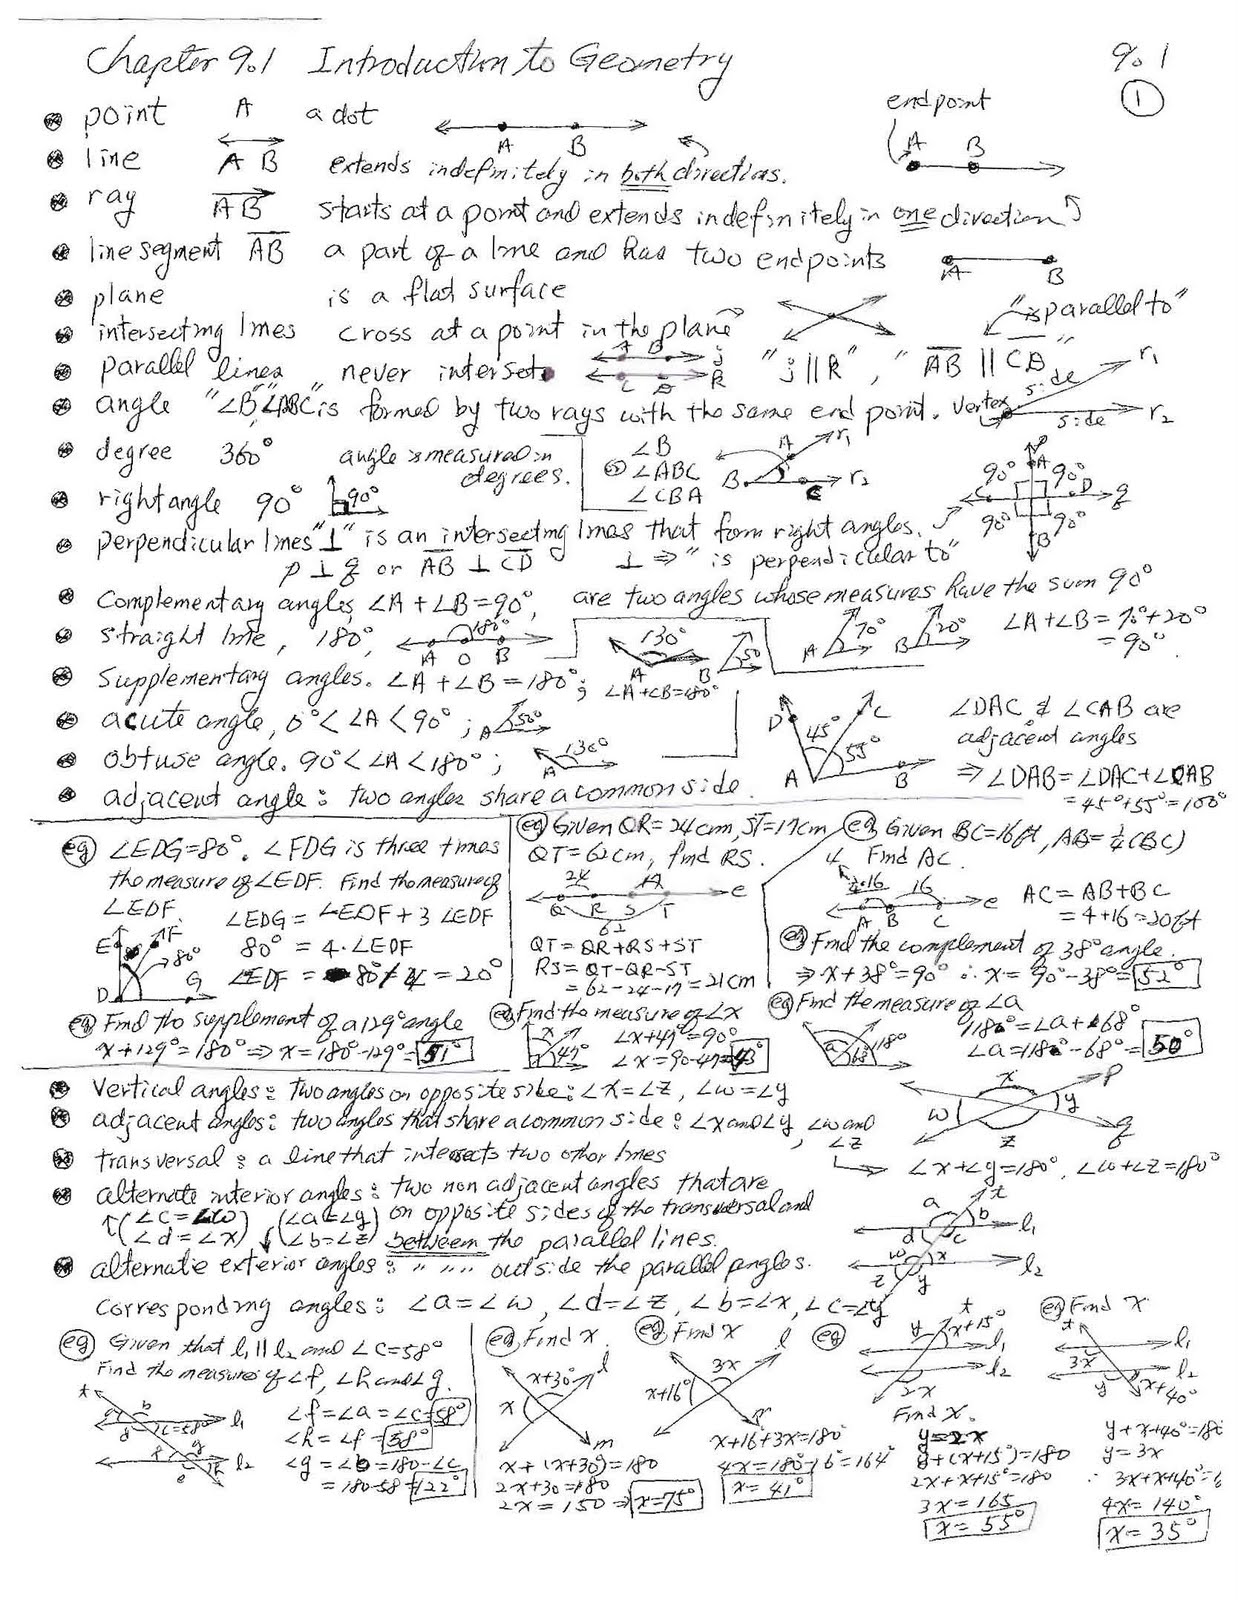 Chapter 9.1 Introduction to Geometry 9.1
①
point A a dot A B endpoint A B
line AB extends indefinitely in both directions.
ray AB starts at a point and extends indefinitely in one direction
line segment AB a part of a line and has two endpoints A B
plane is a flat surface
intersecting lines cross at a point in the plane "is parallel to"
parallel lines never interset. A B j C D k "j || k", "AB || CD"
angle "∠B" "∠ABC" is formed by two rays with the same end point. Vertex side side r₁ r₂
degree 360° angle is measured in degrees. ∠B ∠ABC ∠CBA A B C r₁ r₂
right angle 90° 90° 90° 90° 90° 90° P A C D q B
perpendicular lines "⊥" is an intersecting lines that form right angles.
p ⊥ q or AB ⊥ CD ⊥ ⇒ "is perpendicular to"
Complementary angles, ∠A + ∠B = 90°, are two angles whose measures have the sum 90°
straight line, 180°, 180° A O B 130° A 50° B A 70° B 20° ∠A + ∠B = 70° + 20°
= 90°.
Supplementary angles. ∠A + ∠B = 180°; ∠A + ∠B = 180°
acute angle, 0° < ∠A < 90°; A 50° D 45° C 55° A B ∠DAC & ∠CAB are
adjacent angles
obtuse angle. 90° < ∠A < 180°; A 130° ⇒ ∠DAB = ∠DAC + ∠CAB
= 45° + 55° = 100°
adjacent angle: two angles share a common side.
eg ∠EDG = 80°. ∠FDG is three times
the measure of ∠EDF. Find the measure of
∠EDF. ∠EDG = ∠EDF + 3∠EDF
80° = 4·∠EDF
∠EDF = 80°/4 = 20°
E F 80° D G
eg Given QR = 24cm, ST = 17cm
QT = 62cm, find RS.
24 17 Q R S T e
62
QT = QR + RS + ST
RS = QT - QR - ST
= 62 - 24 - 17 = 21 cm
eg Given BC = 16ft, AB = ¼(BC)
Find AC.
4 ¼·16 16 A B C e
AC = AB + BC
= 4 + 16 = 20ft
eg Find the complement of 38° angle.
⇒ x + 38° = 90° ∴ x = 90° - 38° = 52°
eg Find the supplement of a 129° angle
x + 129° = 180° ⇒ x = 180° - 129° = 51°
eg Find the measure of ∠x
x 47° ∠x + 47° = 90°
∠x = 90 - 47 = 43°
eg Find the measure of ∠a
a 68° 118° 118° = ∠a + 68°
∠a = 118° - 68° = 50°
Vertical angles: Two angles on opposite side: ∠x = ∠z, ∠w = ∠y
x p w y z q
adjacent angles: two angles that share a common side: ∠x and ∠y, ∠w and ∠z
∠x + ∠y = 180°, ∠w + ∠z = 180°
transversal: a line that intersects two other lines
alternate interior angles: two non adjacent angles that are
(∠c = ∠w) (∠a = ∠y) on opposite sides of the transversal and
(∠d = ∠x) (∠b = ∠z) between the parallel lines.
a t b d c l₁ w x z y l₂
alternate exterior angles: " " " " outside the parallel angles.
Corresponding angles: ∠a = ∠w, ∠d = ∠z, ∠b = ∠x, ∠c = ∠y
eg Given that l₁ || l₂ and ∠c = 58°
Find the measures of ∠f, ∠h and ∠g.
t a b ∠c=58° l₁ f g e h l₂
∠f = ∠a = ∠c = 58°
∠h = ∠f = 58°
∠g = ∠b = 180 - ∠c
= 180 - 58 = 122°
eg Find x.
x + 30° l x m
x + (x + 30) = 180
2x + 30 = 180
2x = 150 ⇒ x = 75°
eg Find x
3x l x + 16°
x + 16 + 3x = 180°
4x = 180° - 16° = 164°
x = 41°
eg
t y x + 15° l₁ l₂ 2x
Find x.
y = 2x
y + (x + 15°) = 180
2x + x + 15° = 180
3x = 165
x = 55°
eg Find x
t l₁ 3x l₂ y x + 40°
y + x + 40° = 180
y = 3x
∴ 3x + x + 40° =
4x = 140°
x = 35°